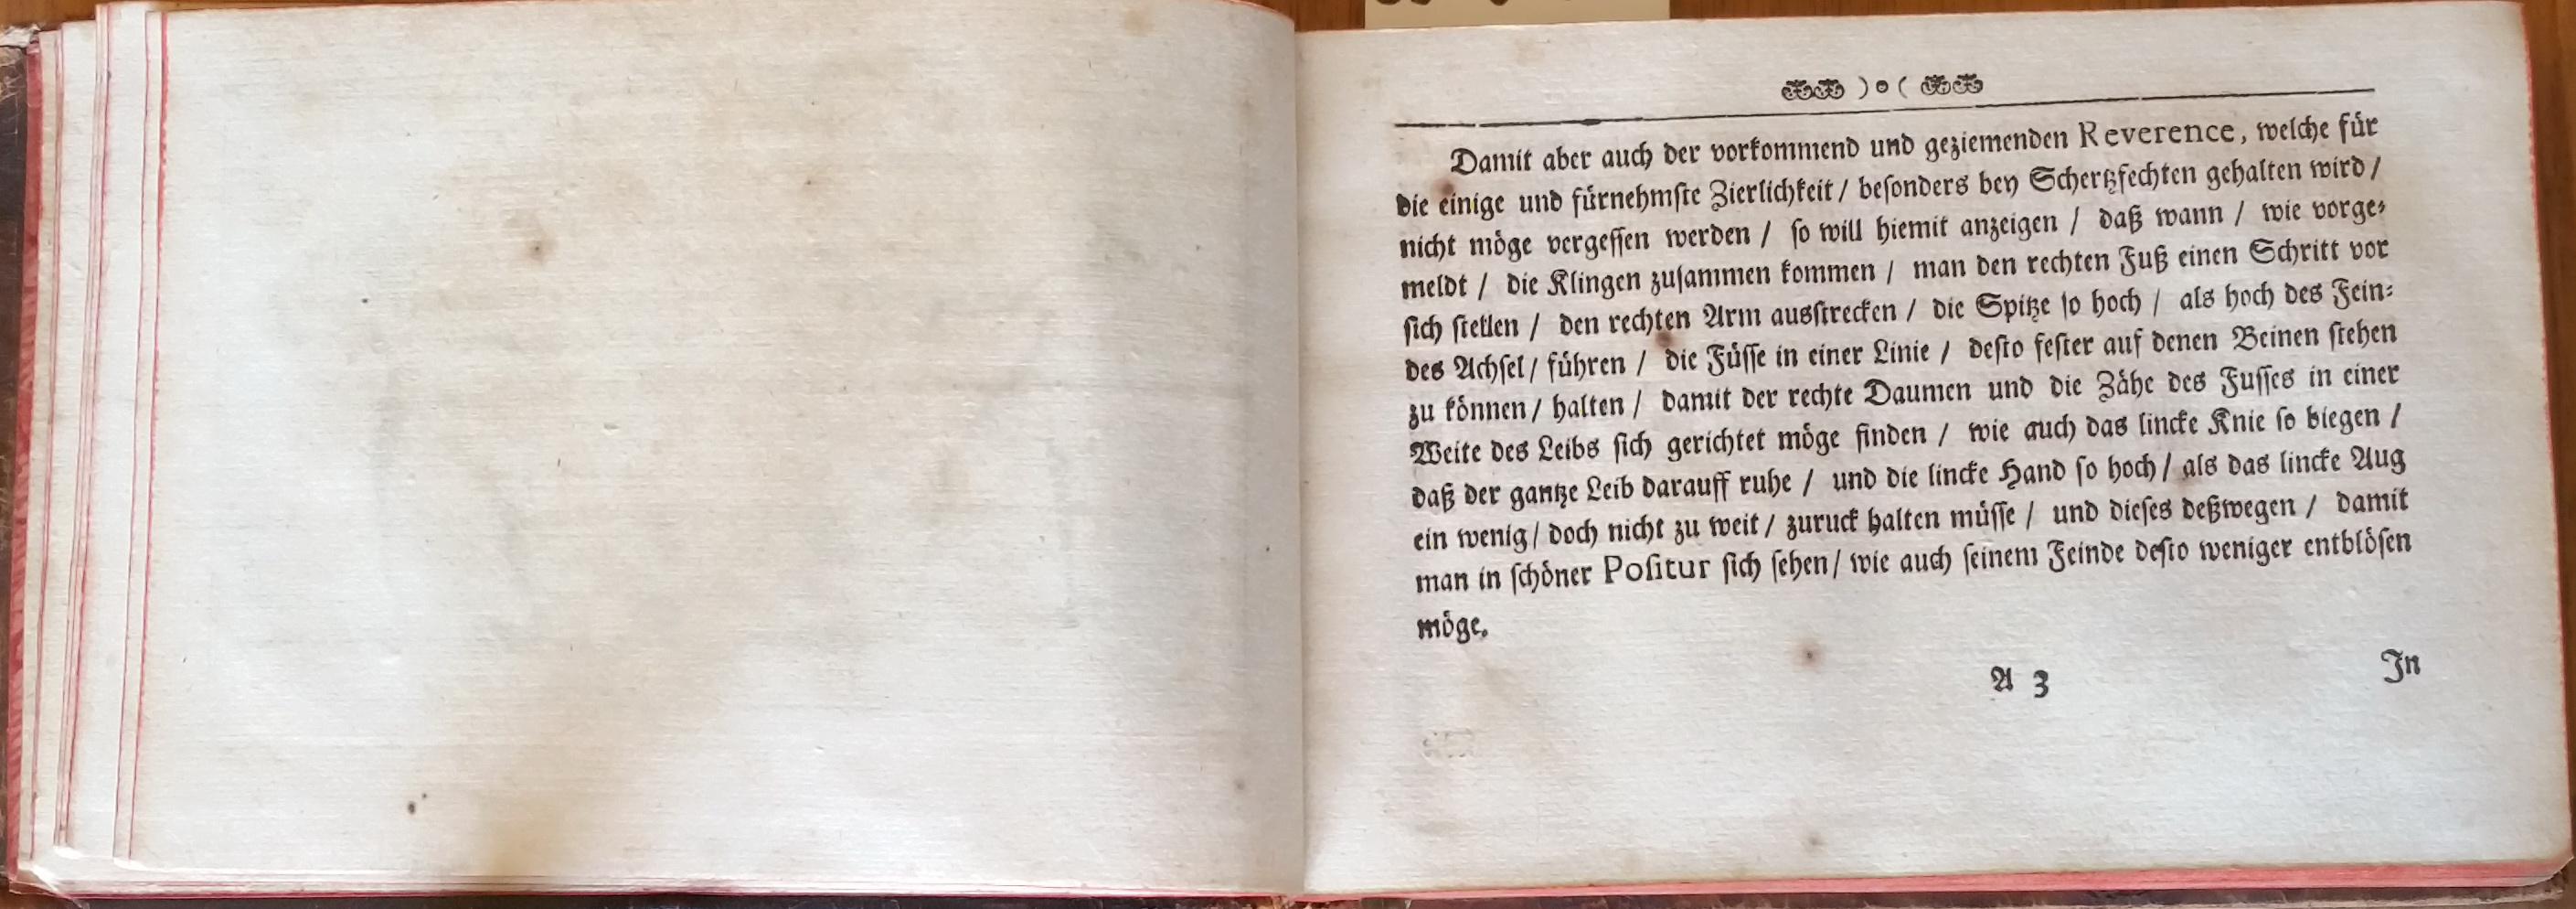 ) o (
Damit aber auch der vorkommend und geziemenden Reverence, welche für
die einige und fürnehmſte Zierlichkeit / beſonders bey Schertzfechten gehalten wird /
nicht möge vergeſſen werden / ſo will hiemit anzeigen / daß wann / wie vorge⸗
meldt / die Klingen zuſammen kommen / man den rechten Fuß einen Schritt vor
ſich ſtellen / den rechten Arm ausſtrecken / die Spitze ſo hoch / als hoch des Fein⸗
des Achſel / führen / die Füſſe in einer Linie / deſto feſter auf denen Beinen ſtehen
zu können / halten / damit der rechte Daumen und die Zähe des Fuſſes in einer
Weite des Leibs ſich gerichtet möge finden / wie auch das lincke Knie ſo biegen /
daß der gantze Leib darauff ruhe / und die lincke Hand ſo hoch / als das lincke Aug
ein wenig / doch nicht zu weit / zuruck halten müſſe / und dieſes deßwegen / damit
man in ſchöner Poſitur ſich ſehen / wie auch ſeinem Feinde deſto weniger entblöſen
möge.
A 3
In